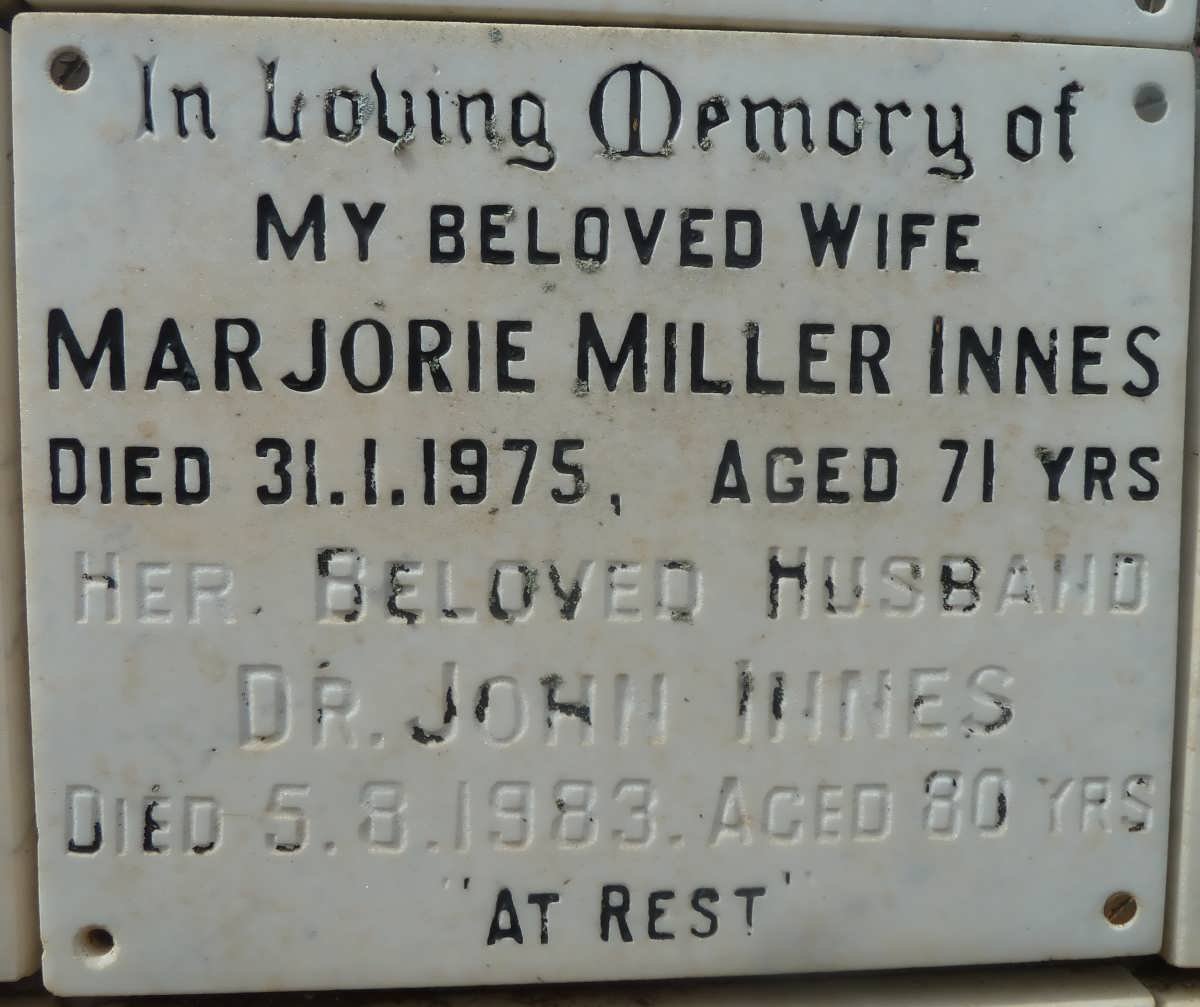 In Loving Memory of
MY BELOVED WIFE
MARJORIE MILLER INNES
DIED 31.1.1975, AGED 71 YRS
HER BELOVED HUSBAND
DR. JOHN INNES
DIED 5.8.1983. AGED 80 YRS
"AT REST"